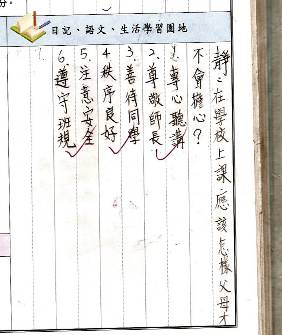 日記、語文、生活學習園地
靜:在學校上課,應該怎樣父母才
不會擔心?
1.專心聽講
2.尊敬師長
3.善待同學
4.秩序良好
5.注意安全
6.遵守班規
7.